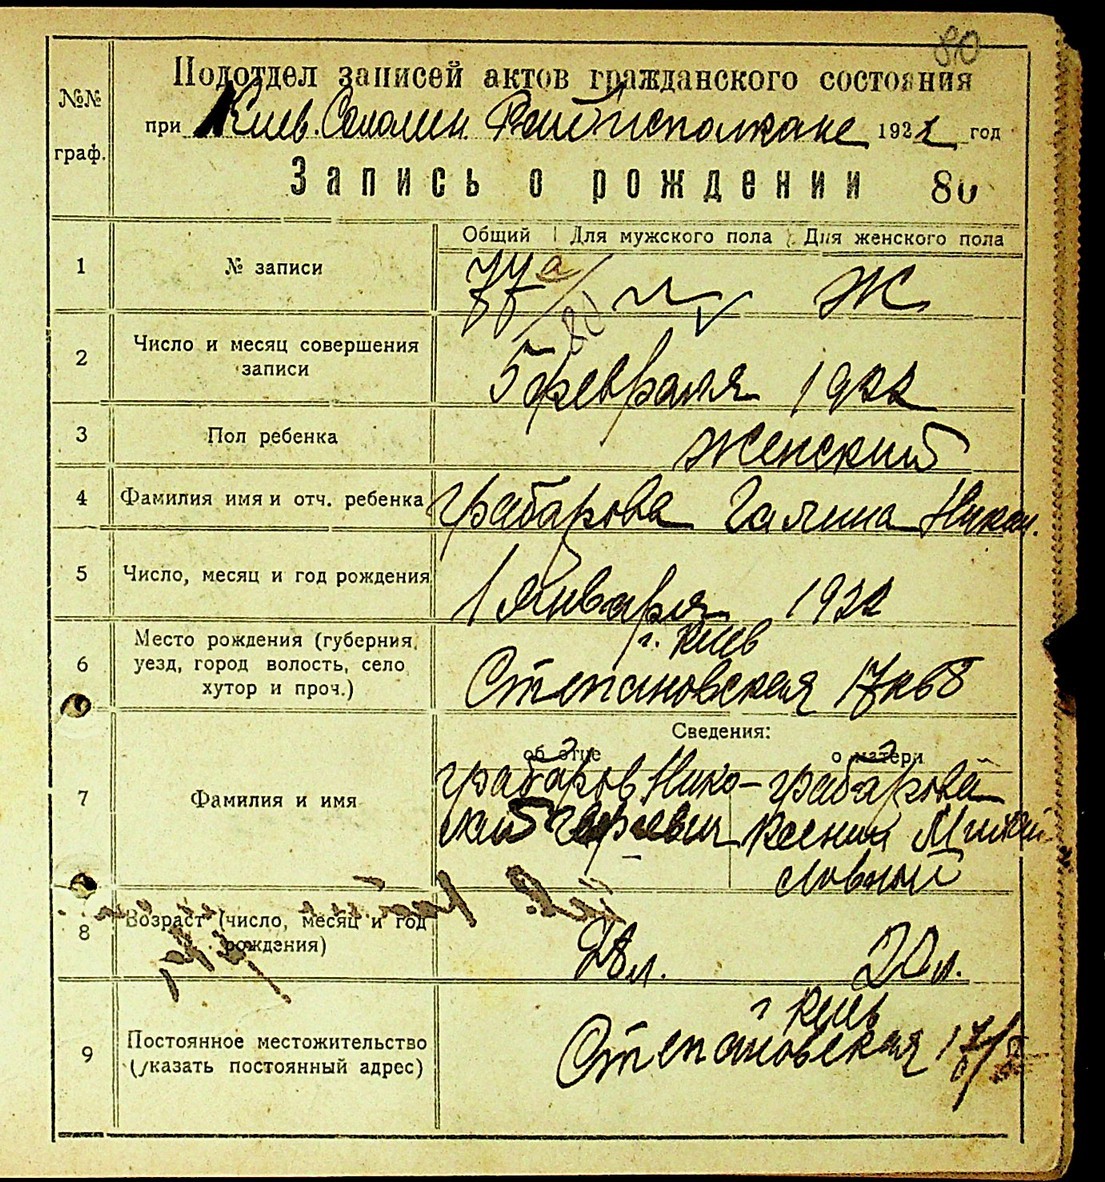 80
Подотдел записей актов гражданского состояния
№№ граф.
при Киев. Соломен. Райисполкоме 1922 год
Запись о рождении 80
Общий Для мужского пола Для женского пола
1 № записи 77а Ж
2 Число и месяц совершения записи 5 февраля 1922
3 Пол ребенка женский
4 Фамилия имя и отч. ребенка Грабарова Галина Никол.
5 Число, месяц и год рождения 1 января 1922
6 Место рождения (губерния, уезд, город волость, село хутор и проч.) г. Киев
Степановская 17 кв 8
Сведения:
об отце о матери
7 Фамилия и имя
Грабаров Нико- Грабарова
лай Ксения
8 Возраст (число, месяц и год рождения) 28 л. 20 л.
9 Постоянное местожительство (указать постоянный адрес) г Киев
Степановская 17/